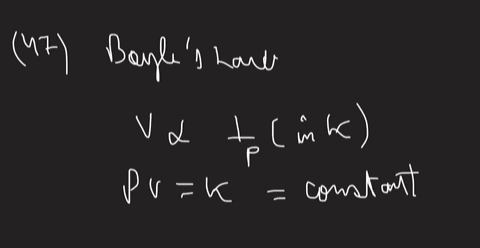 (47) Boyle's Law
V ∝ 1/P (in K)
PV = K = constant